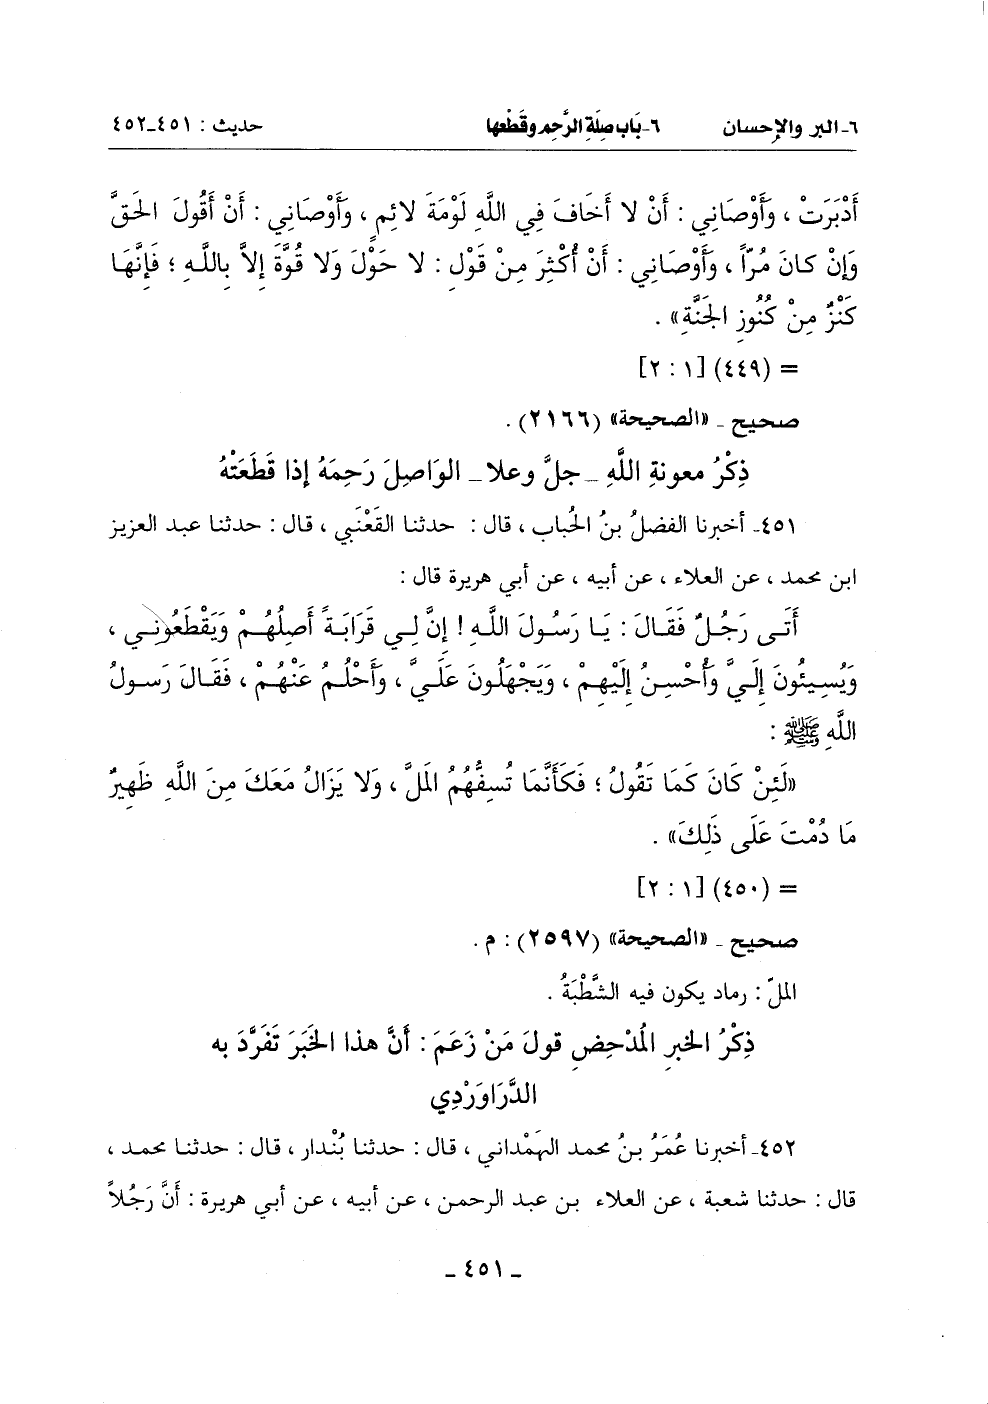 ٦- البر والإحسان ٦- بَاب صِلَة الرَّحِم وقَطْعها حديث : ٤٥١-٤٥٢
أَدْبَرَتْ ، وَأَوْصَانِي : أَنْ لا أَخَافَ فِي اللَّهِ لَوْمَةَ لائِمٍ ، وَأَوْصَانِي : أَنْ أَقُولَ الحَقَّ
وَإِنْ كانَ مُرّاً ، وَأَوْصَانِي : أَنْ أُكْثِرَ مِنْ قَوْلِ : لا حَوْلَ وَلا قُوَّةَ إِلاَّ بِاللَّهِ ؛ فَإِنَّهَا
كَنْزٌ مِنْ كُنُوزِ الجَنَّةِ» .
= (٤٤٩) [١ : ٢]
صحيح ـ «الصحيحة» (٢١٦٦) .
ذِكْرُ معونةِ اللَّهِ ـ جلَّ وعلا ـ الوَاصِلَ رَحِمَهُ إذا قَطَعَتْهُ
٤٥١- أخبرنا الفضلُ بنُ الحُباب ، قال : حدثنا القَعْنَبي ، قال : حدثنا عبد العزيز
ابن محمد ، عن العلاء ، عن أبيه ، عن أبي هريرة قال :
أَتَى رَجُلٌ فَقَالَ : يَا رَسُولَ اللَّهِ ! إِنَّ لِي قَرَابَةً أَصِلُهُمْ وَيَقْطَعُونِي ،
وَيُسِيئُونَ إِلَيَّ وَأُحْسِنُ إِلَيْهِمْ ، وَيَجْهَلُونَ عَلَيَّ ، وَأَحْلُمُ عَنْهُمْ ، فَقَالَ رَسولُ
اللَّهِ ﷺ :
«لَئِنْ كَانَ كَمَا تَقُولُ ؛ فَكَأَنَّمَا تُسِفُّهُمُ المَلَّ ، وَلا يَزَالُ مَعَكَ مِنَ اللَّهِ ظَهِيرٌ
مَا دُمْتَ عَلَى ذَلِكَ» .
= (٤٥٠) [١ : ٢]
صحيح ـ «الصحيحة» (٢٥٩٧) : م .
الملّ : رماد يكون فيه الشَّطْبَةُ .
ذِكْرُ الخبرِ المُدْحِضِ قولَ مَنْ زَعَمَ : أَنَّ هذا الخَبَرَ تَفَرَّدَ به
الدَّرَاوَرْدِي
٤٥٢- أخبرنا عُمَرُ بنُ محمد الهَمْداني ، قال : حدثنا بُنْدار ، قال : حدثنا محمد ،
قال : حدثنا شعبة ، عن العلاء بن عبد الرحمن ، عن أبيه ، عن أبي هريرة : أَنَّ رَجُلاً
ـ ٤٥١ ـ